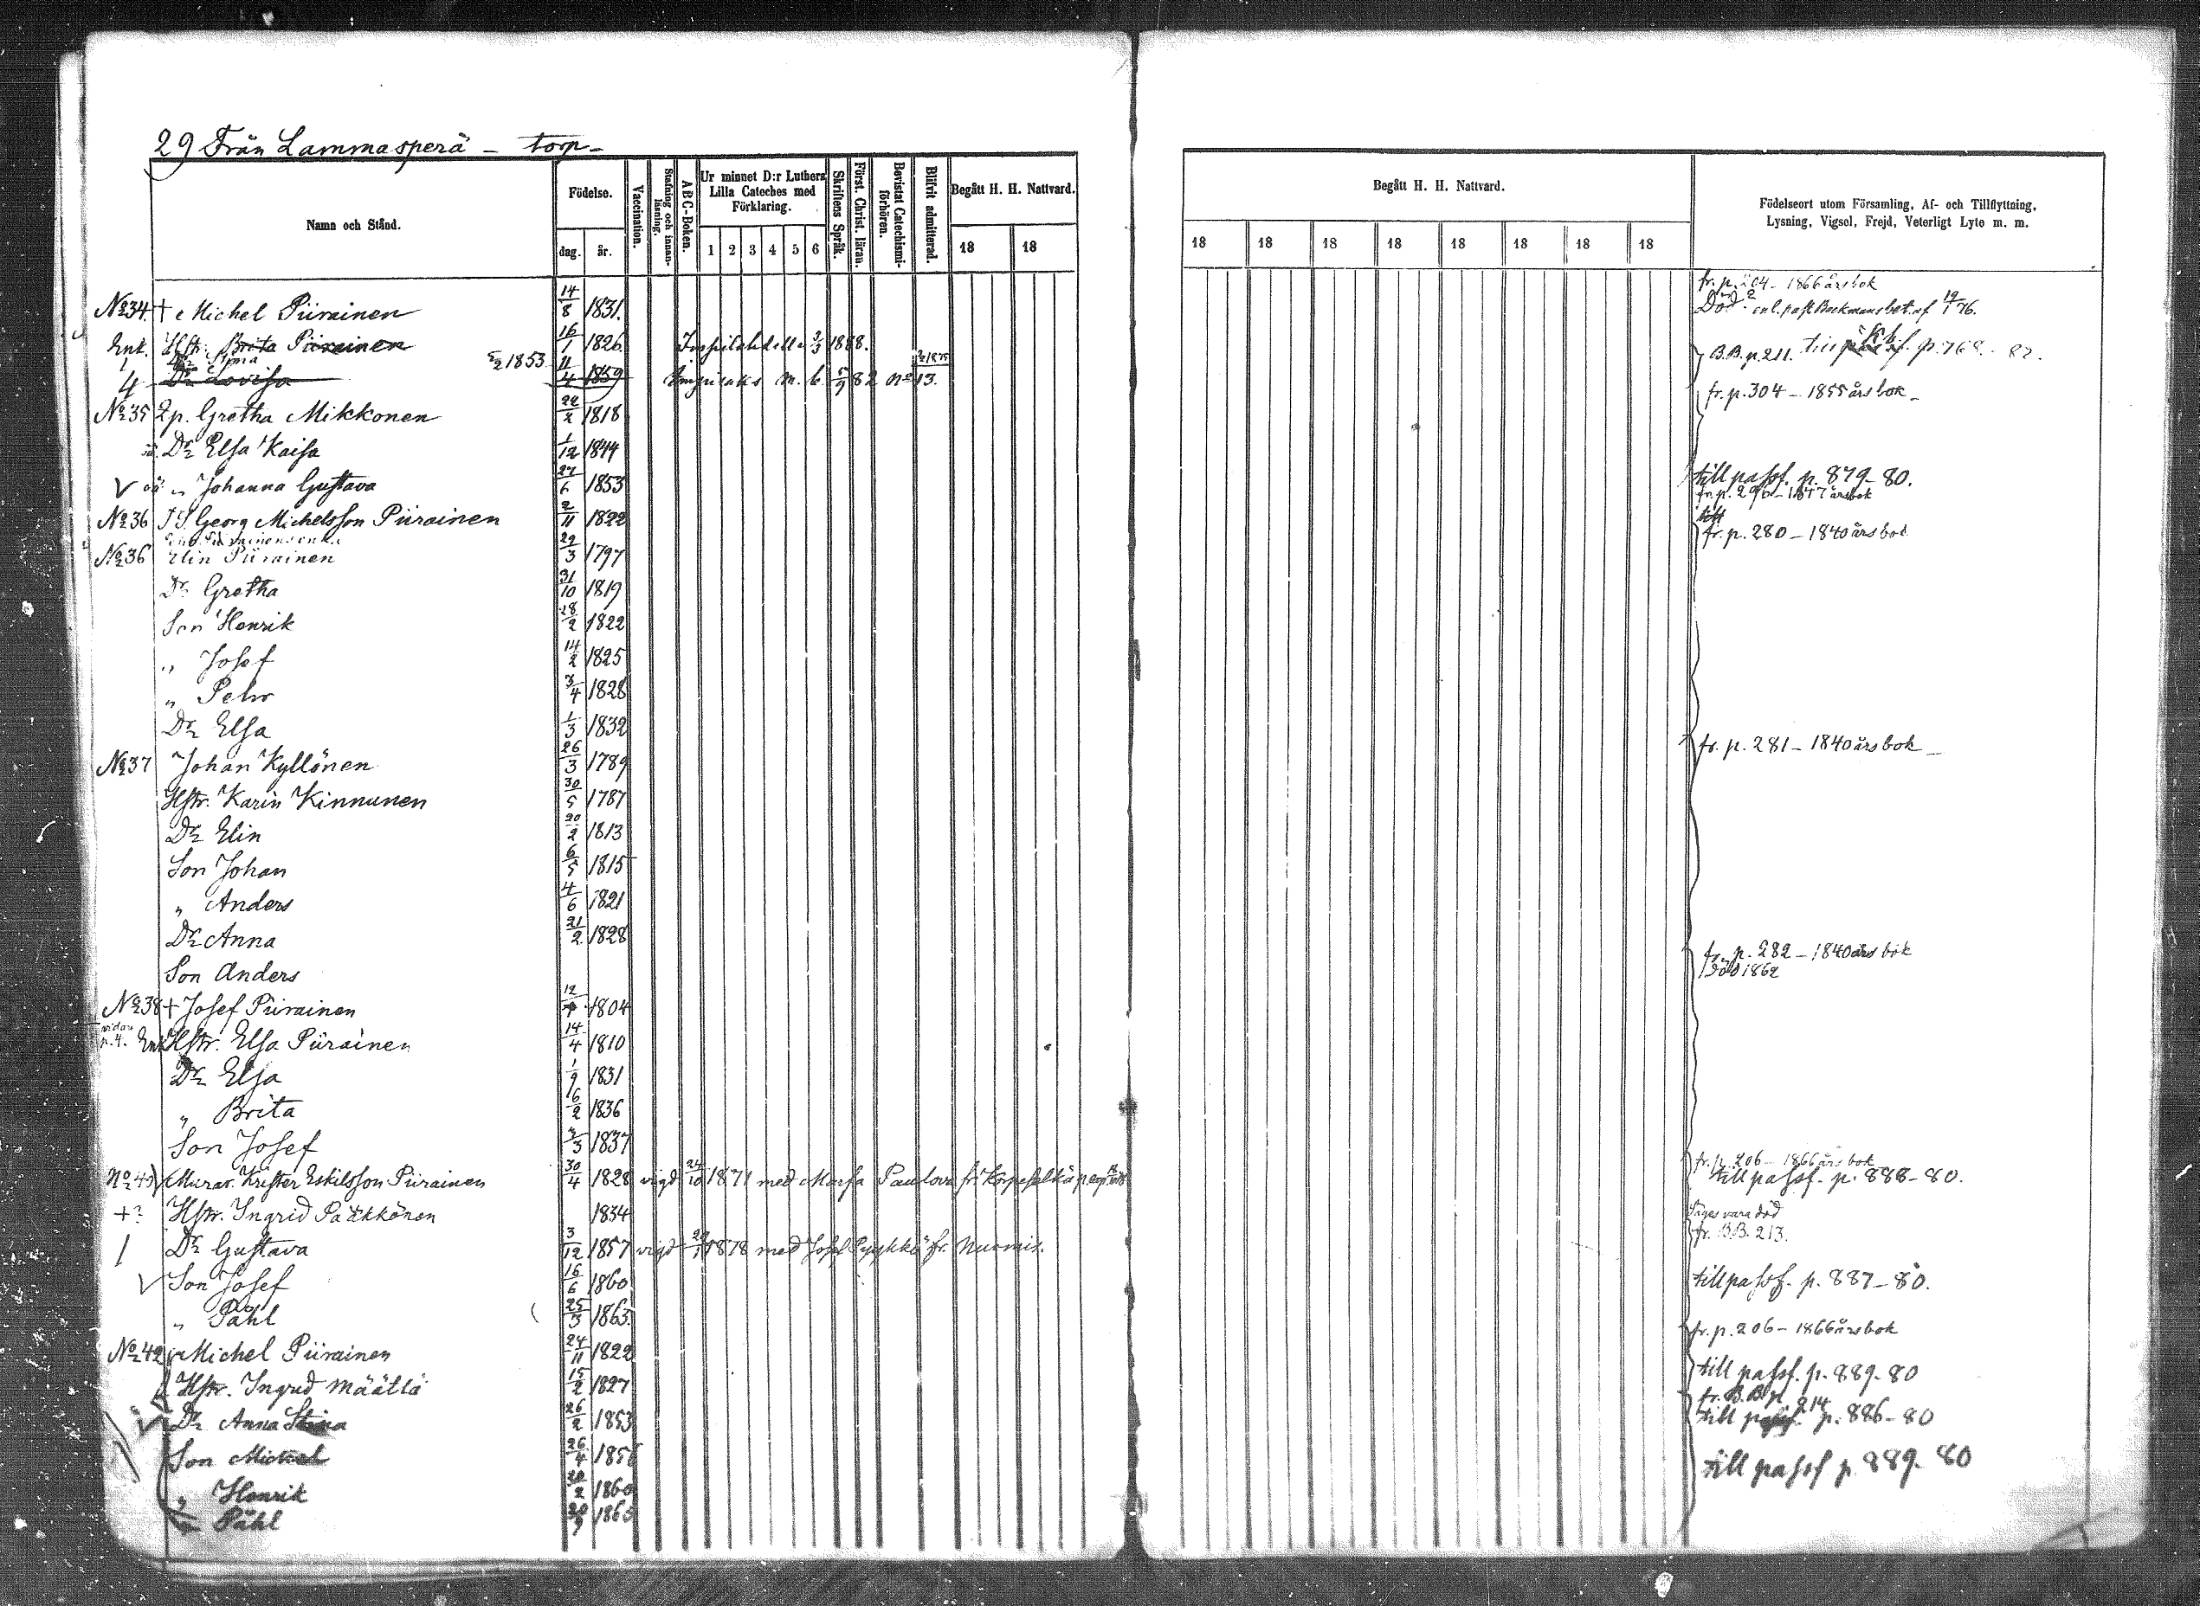 29 Från Lammasperä - torp -
Namn och Stånd.
Födelse.
dag. år.
Vaccination.
Stafning och innanläsning.
ABC-Boken.
Ur minnet D:r Luthers Lilla Cateches med Förklaring.
1 2 3 4 5 6
Skriftens Språk.
Först. Christ. läran.
Bevistat Catechismiförhören.
Blifvit admitterad.
Begått H. H. Nattvard.
18 18
Begått H. H. Nattvard.
18 18 18 18 18 18 18 18
Födelseort utom Församling, Af- och Tillflyttning,
Lysning, Vigsel, Frejd, Veterligt Lyte m. m.
No 34 + Michel Piirainen 14/8 1831. fr. p. 204 - 1866 års bok
Död enl. past. Backmans bet. af 19/1 76.
Enk. Hstr. Brita Piirainen 16/1 1826 1888. B.B. p. 211. p. 768. - 82.
Stina 5/2 1853
4 Dr Lovisa 11/4 1859 m. b. 5/9 82 no 13.
No 35 Lp. Gretha Mikkonen 22/2 1818 fr. p. 304 - 1855 års bok -
Dr Elsa Kaisa 1/12 1844
" Johanna Gustava 27/6 1853 till passf. p. 879-80.
No 36 Georg Michelsson Piirainen 2/11 1822 fr. p. 296 - 1847 årsbok
No 36 Elin Piirainen 29/3 1797 fr. p. 280 - 1840 års bok
Dr Gretha 31/10 1819
Son Henrik 28/2 1822
" Josef 14/2 1825
" Pehr 3/4 1828
Dr Elsa 1/3 1832
No 37 Johan Kyllönen 26/3 1789 fr. p. 281 - 1840 års bok -
Hstr. Karin Kinnunen 30/5 1787
Dr Elin 20/2 1813
Son Johan 6/5 1815
" Anders 4/6 1821
Dr Anna 21/2 1828
Son Anders
No 38 + Josef Piirainen 1804 fr. p. 282 - 1840 års bok
Död 1862
vidare p. 4. Enk Hstr. Elsa Piirainen 14/4 1810
Dr Elsa 1/9 1831
" Brita 6/2 1836
Son Josef 1837
Murar. Krister Eskilsson Piirainen 30/4 1828 vigd 24/10 1871 med Marfa Paulova fr. Korpeselkä fr. p. 206 - 1866 års bok
till passf. p. 888-80.
+? Hstr. Ingrid Pääkkönen 1834 Säges vara död
Dr Gustava 3/12 1857 vigd 1878 med Josef fr. Nurmis. fr. B.B. 213.
Son Josef 16/6 1860 till passf. p. 887-80.
" Påhl 25/3 1863
No 42 Michel Piirainen 24/11 1822 fr. p. 206 - 1866 års bok
Hstr. Ingrid Määttä 15/2 1827 till passf. p. 889-80
fr. B.B. p. 214
Dr Anna Stina 26/2 1853 till passf. p. 886-80
Son Michel 26/4 1856 till passf p. 889-80
" Henrik 1860
" Påhl 1863